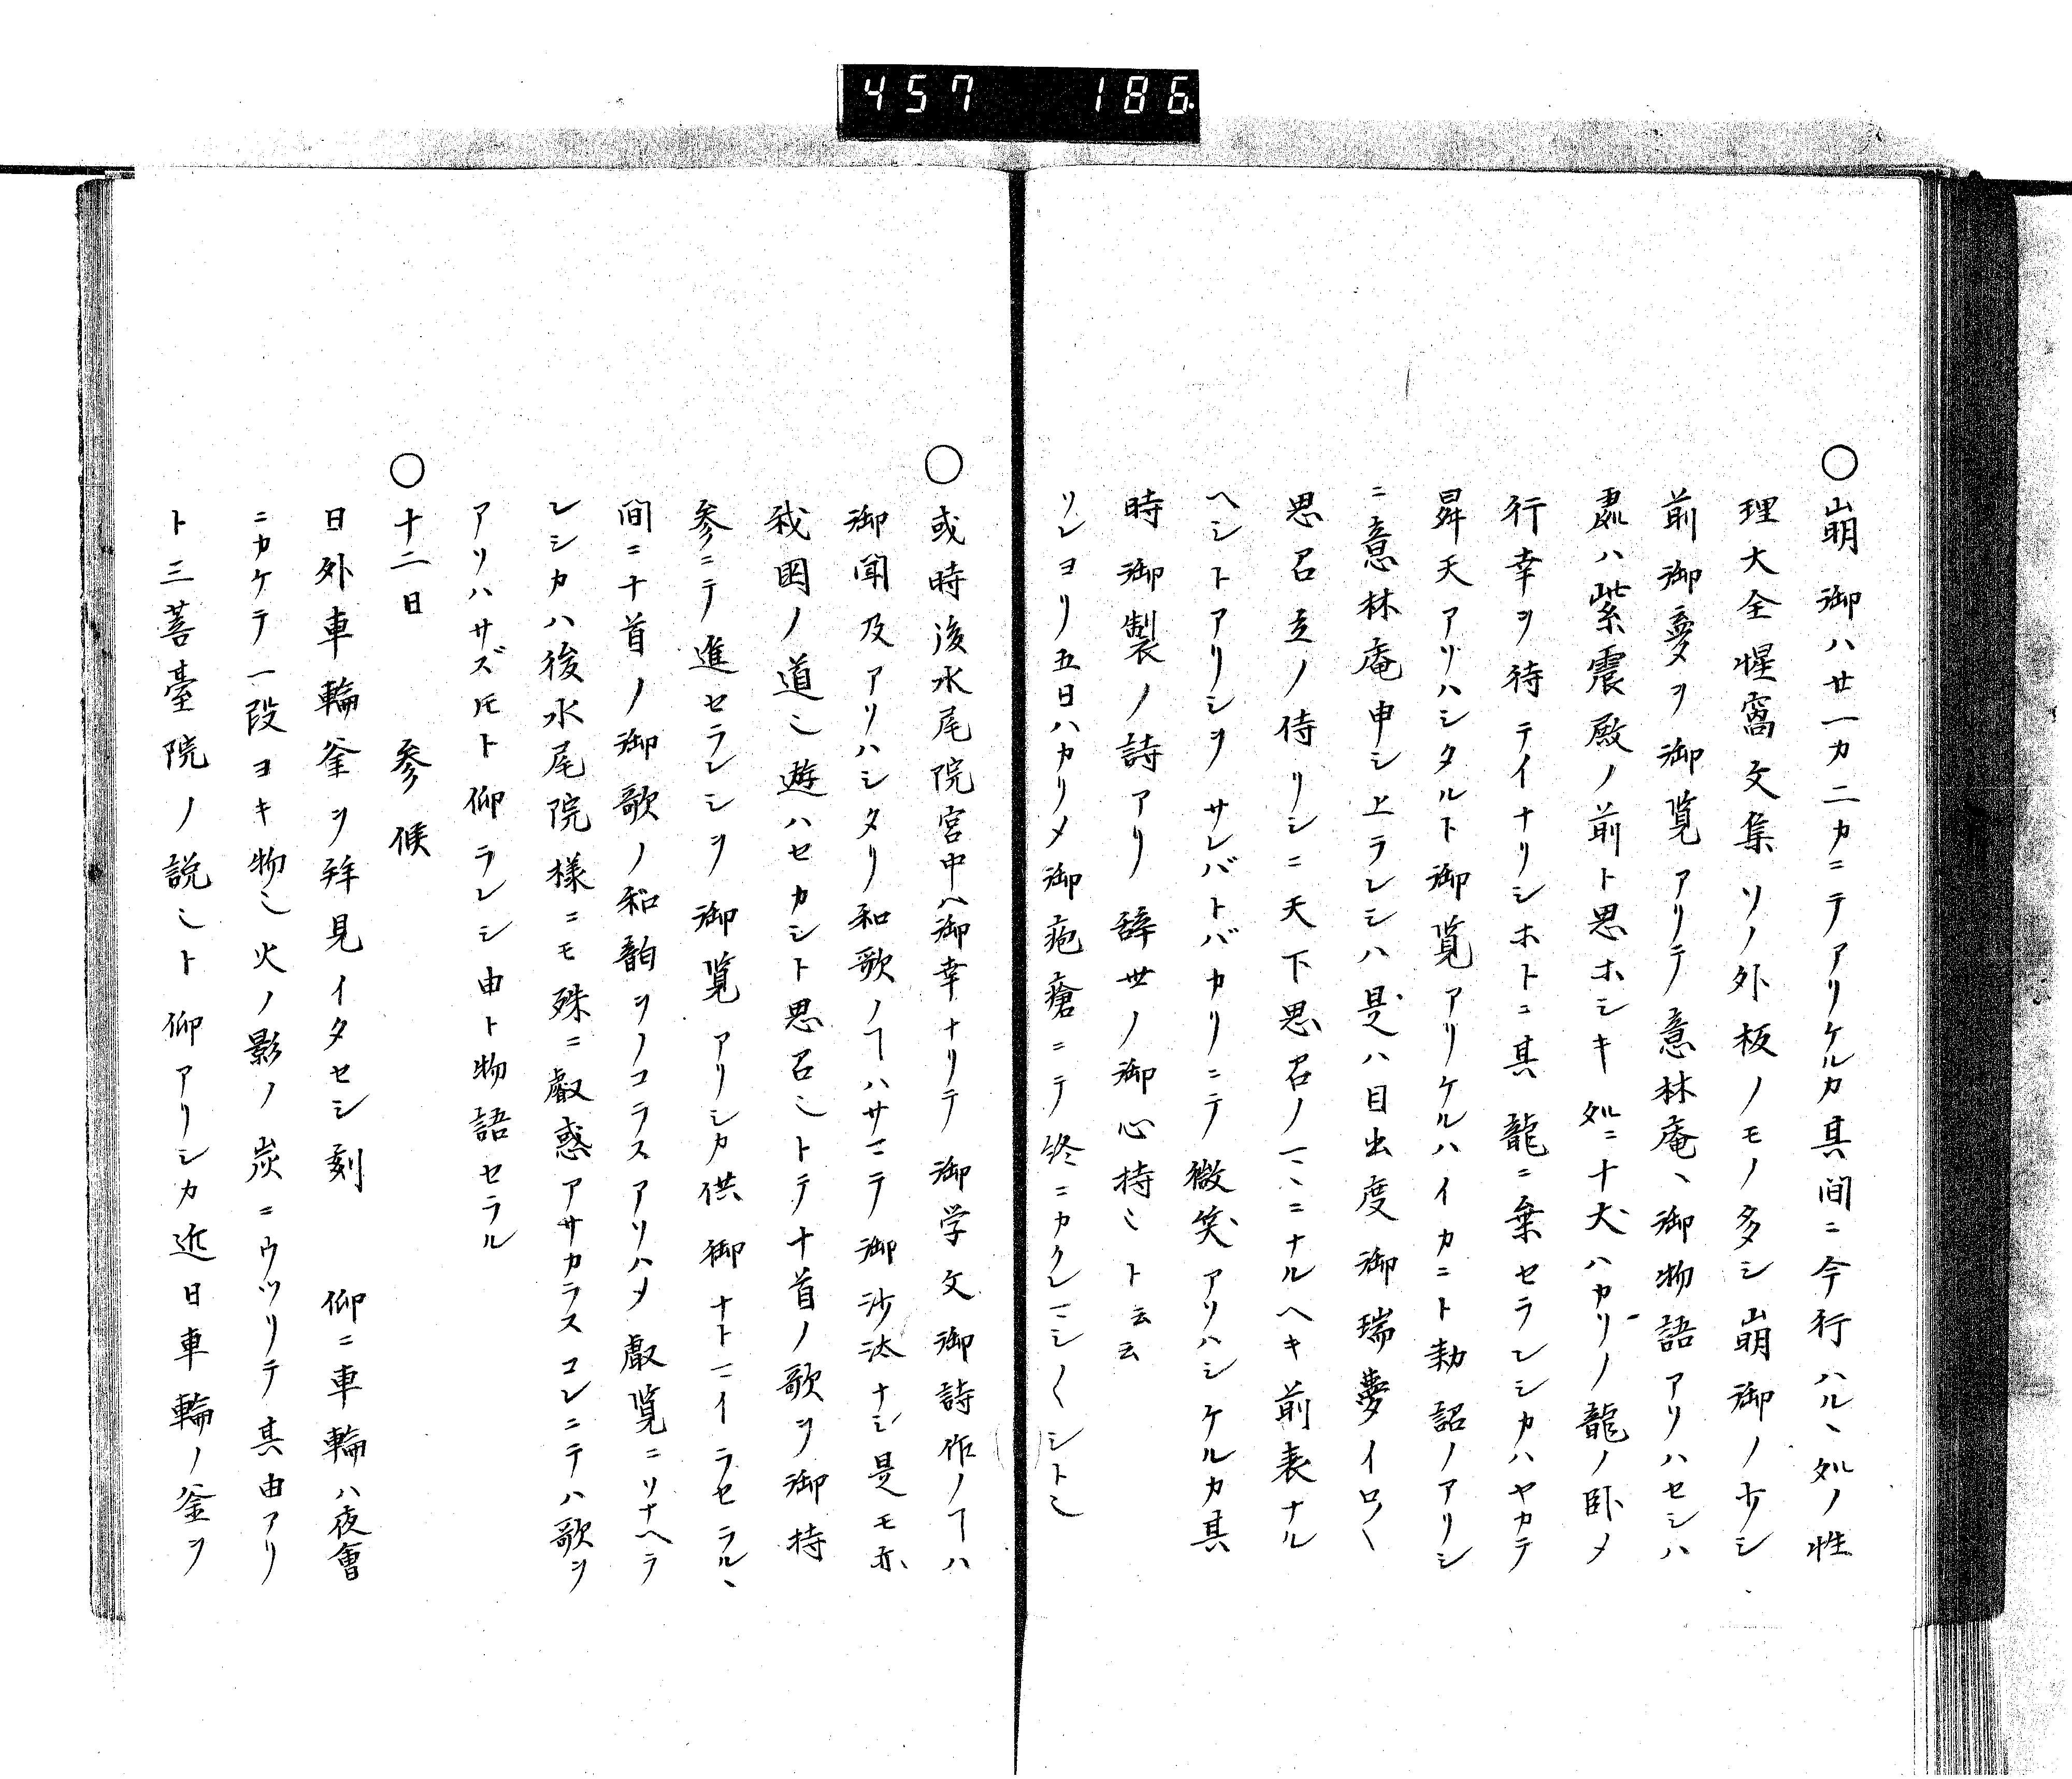 457 186
〇崩御ハ廿一カ二カニテアリケルカ其間ニ今行ハルヽ処ノ性
理大全惺窩文集ソノ外板ノモノ多シ崩御ノ少シ
前御夢ヲ御覧アリテ意林庵ヽ御物語アリハセシハ
處ハ紫震殿ノ前ト思ホシキ処ニ十丈ハカリノ龍ノ臥メ
行幸ヲ待テイナリシホトニ其龍ニ乗セラレシカハヤカテ
昇天アリハシタルト御覧アリケルハイカニト勅詔ノアリシ
ニ意林庵申シ上ラレシハ是ハ目出度御瑞夢イロ〱
思召立ノ侍リシニ天下思召ノマヽニナルヘキ前表ナル
ヘシトアリシヲサレバトバカリニテ微笑アリハシケルカ其
時御製ノ詩アリ辞世ノ御心持ミト云云
ソレヨリ五日ハカリメ御疱瘡ニテ終ニカクレマシ〱シトミ
〇或時後水尾院宮中ヘ御幸ナリテ御学文御詩作ノヿハ
御聞及アリハシタリ和歌ノヿハサマテ御沙汰ナシ是モ亦
我国ノ道ミ遊ハセカシト思召ミトテ十首ノ歌ヲ御持
参ニテ進セラレシヲ御覧アリシカ供御ナトマイラセラルヽ
間ニ十首ノ御歌ノ和韵ヲノコラスアリハメ叡覧ニソナヘラ
レシカハ後水尾院様ニモ殊ニ叡感アサカラスコレニテハ歌ヲ
アリハサズトモト仰ラレシ由ト物語セラル
〇十二日　参候
日外車輪釜ヲ拜見イタセシ刻　仰ニ車輪ハ夜會
ニカケテ一段ヨキ物ミ火ノ影ノ炭ニウツリテ其由アリ
ト三菩臺院ノ説ミト仰アリシカ近日車輪ノ釜ヲ